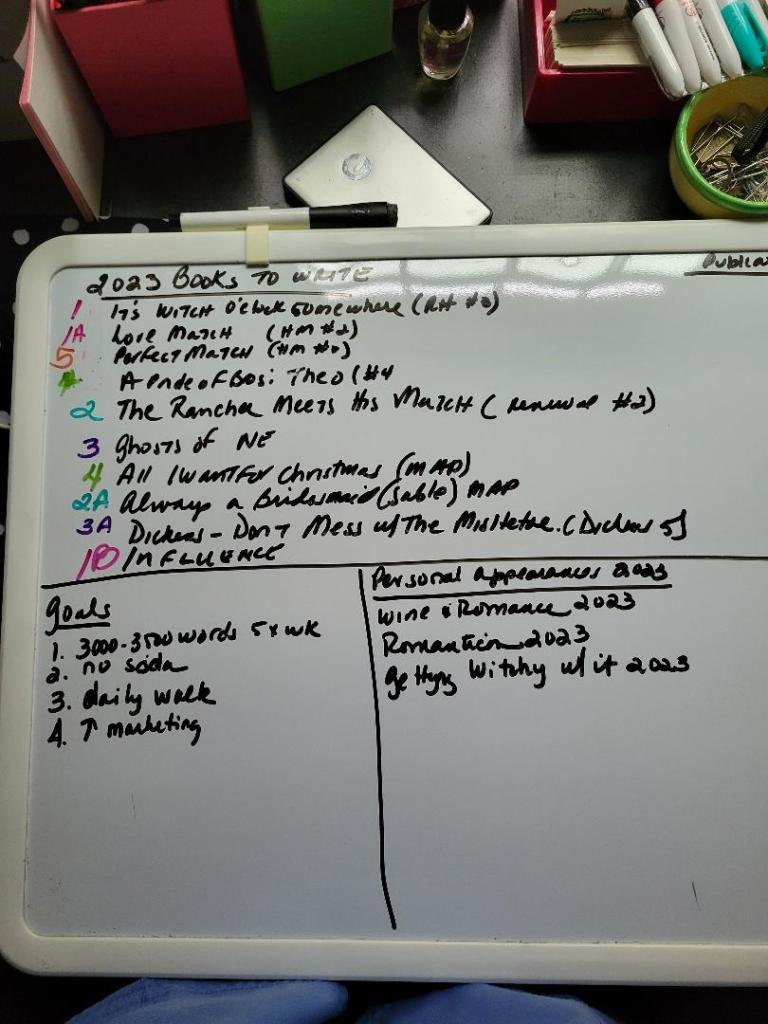 2023 Books To Write
Publica
1 It's Witch O'clock Somewhere (RH #3)
1A Love Match (HM #2)
5 Perfect Match (HM #
A Pride of Bos: Theo (#4
2 The Rancher Meets His Match (renewal #2)
3 Ghosts of NE
4 All I Want For Christmas (MAP)
2A Always a Bridesmaid (Sable) MAP
3A Dickens - Don't Mess w/ The Mistletoe. (Dickens 5)
1B INFLUENCE
Goals
1. 3000-3500 words 5x wk
2. no soda
3. daily walk
4. ↑ marketing
Personal Appearances 2023
Wine & Romance 2023
Romanticon 2023
Getting Witchy w/ it 2023